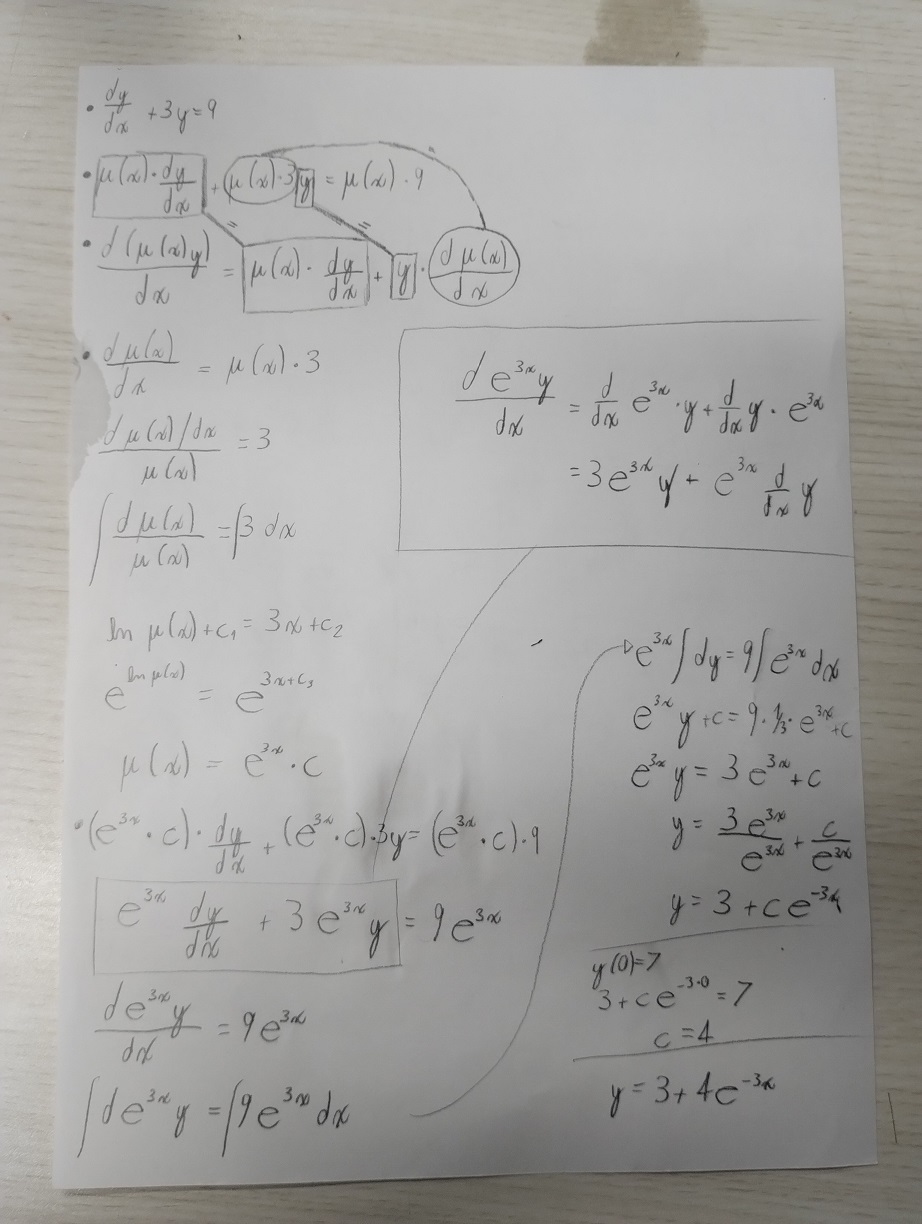 • dy/dx + 3y = 9
• μ(x) · dy/dx + μ(x) · 3 y = μ(x) · 9
= =
• d(μ(x)y)/dx = μ(x) · dy/dx + y · dμ(x)/dx
• dμ(x)/dx = μ(x) · 3
dμ(x)/dx / μ(x) = 3
∫ dμ(x)/μ(x) = ∫3 dx
ln μ(x) + c₁ = 3x + c₂
e^(ln μ(x)) = e^(3x+c₃)
μ(x) = e^(3x) · c
• (e^(3x) · c) · dy/dx + (e^(3x) · c) · 3y = (e^(3x) · c) · 9
e^(3x) dy/dx + 3e^(3x) y = 9e^(3x)
de^(3x)y/dx = 9e^(3x)
∫de^(3x)y = ∫9e^(3x) dx
de^(3x)y/dx = d/dx e^(3x) · y + d/dx y · e^(3x)
= 3e^(3x) y + e^(3x) d/dx y
e^(3x) ∫dy = 9∫e^(3x) dx
e^(3x) y + c = 9 · 1/3 · e^(3x) + c
e^(3x) y = 3e^(3x) + c
y = 3e^(3x)/e^(3x) + c/e^(3x)
y = 3 + ce^(-3x)
y(0)=7
3 + ce^(-3·0) = 7
c = 4
y = 3 + 4e^(-3x)